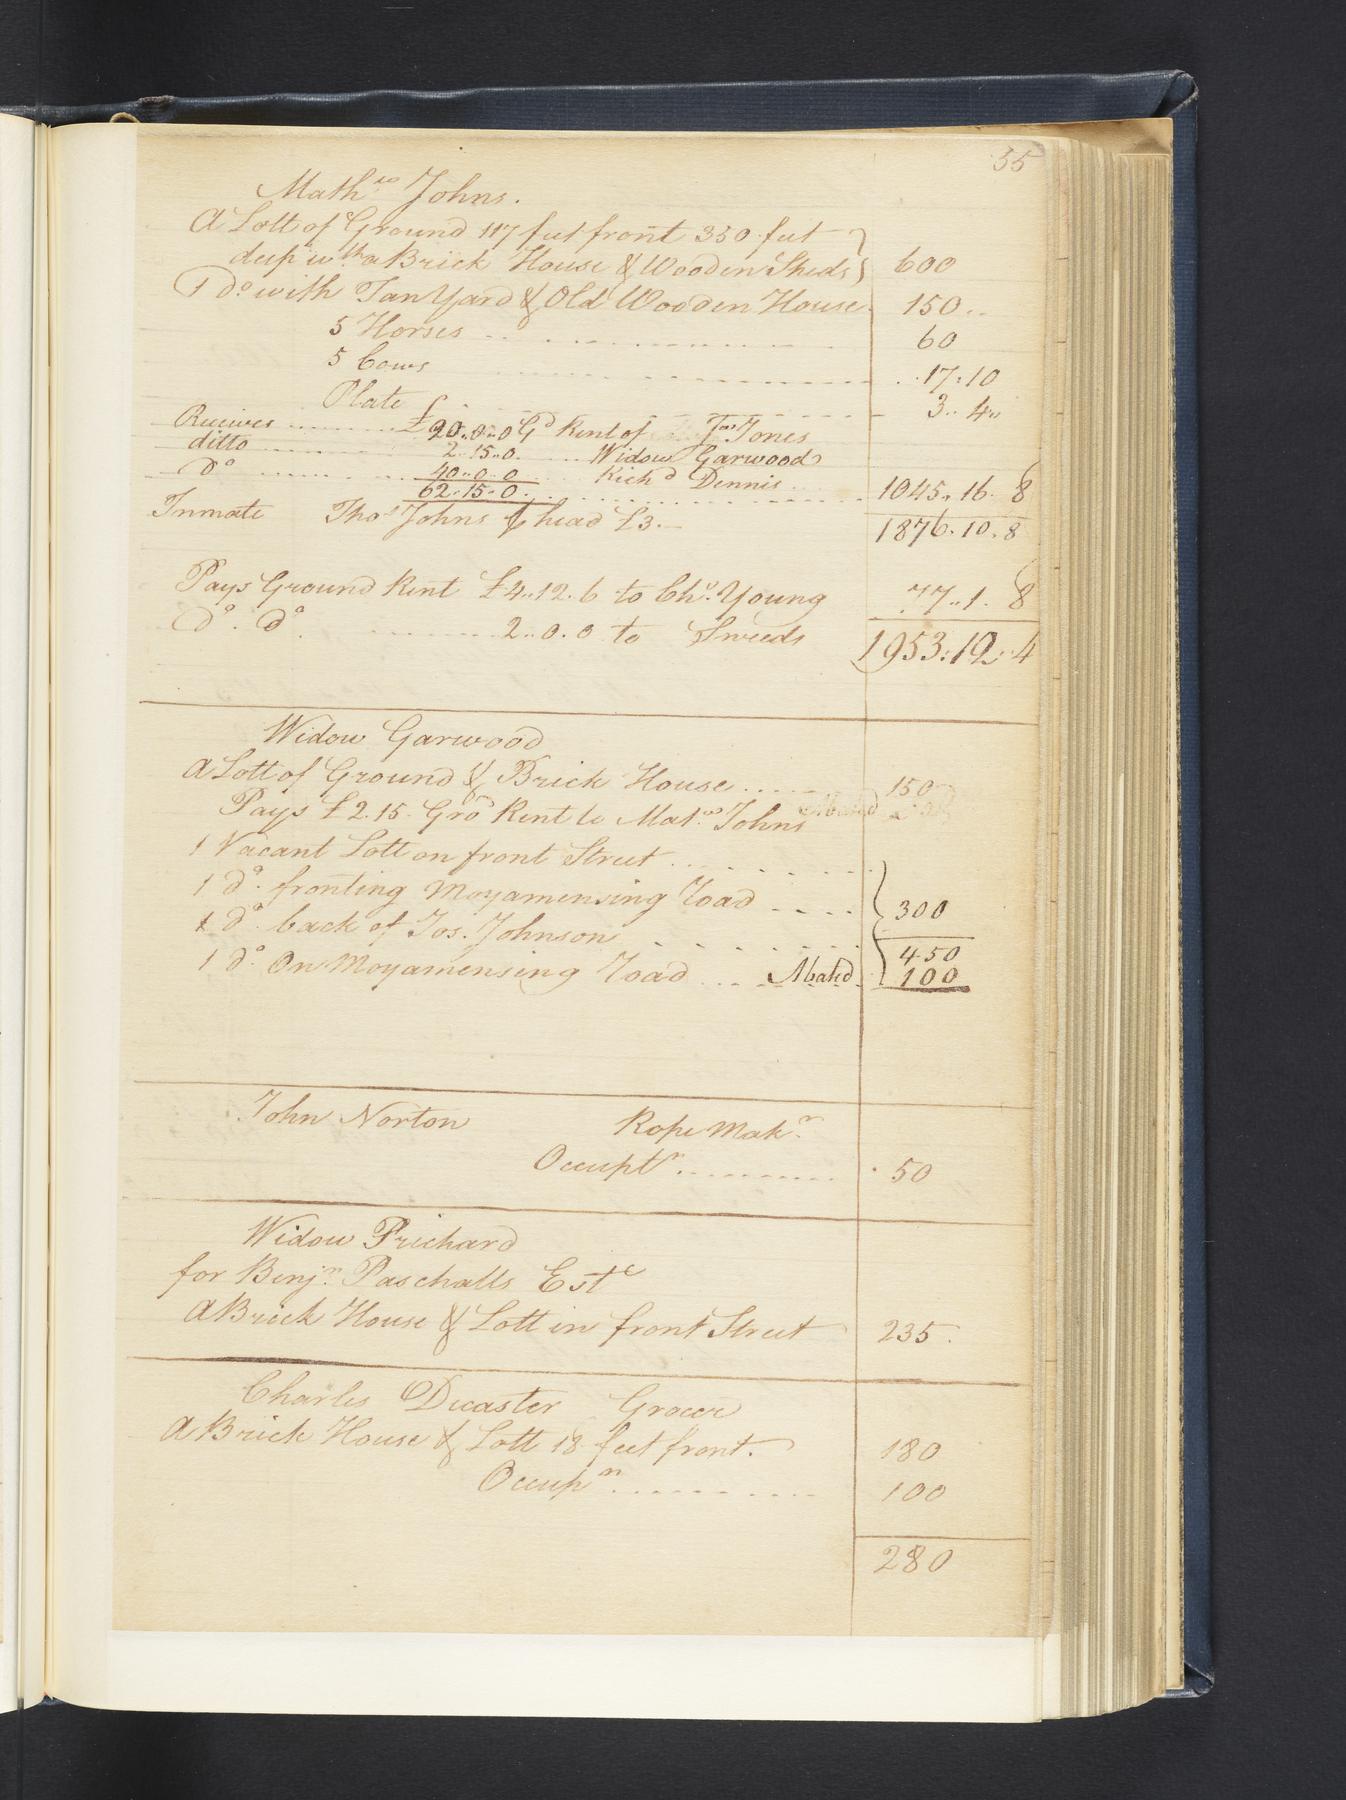 55
Mathss Johns.
A Lott of Ground 117 feet front 350 feet
deep wth a Brick House & Wooden Sheds 600
1 do with Tan Yard & Old Wooden House 150..
5 Horses 60
5 Cows 17:10
Plate 3..4..
Receives £20..0..0 Gd Rent of Jas Jones
ditto 2..15..0. Widow Garwood
do 40..0..0 Richd Dennis
62..15..0. 1045..16..8
Inmate Thos Johns p head £3.— 1876.10.8
Pays Ground Rent £4..12.6 to Chs. Young 77..1.8
do. do. 2..0.0 to Sweeds 1953:12..4
Widow Garwood
A Lott of Ground & Brick House..... 150
Pays £2.15. Gro Rent to Mats Johns Abated
1 Vacant Lott on front Street
1 do. fronting Moyamensing Road
1 do. back of Jos. Johnson 300
450
1 do. On Moyamensing Road Abated 100
John Norton Rope Makr.
Occuptn 50
Widow Prichard
for Benjn. Paschalls Este
A Brick House & Lott in front Street 235.
Charles Ducaster Grocer
A Brick House & Lott 18 feet front. 180
Occupn 100
280